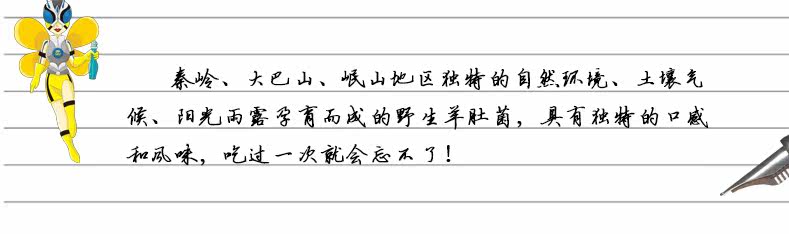 秦岭、大巴山、岷山地区独特的自然环境、土壤气
候、阳光雨露孕育而成的野生羊肚菌，具有独特的口感
和风味，吃过一次就会忘不了！